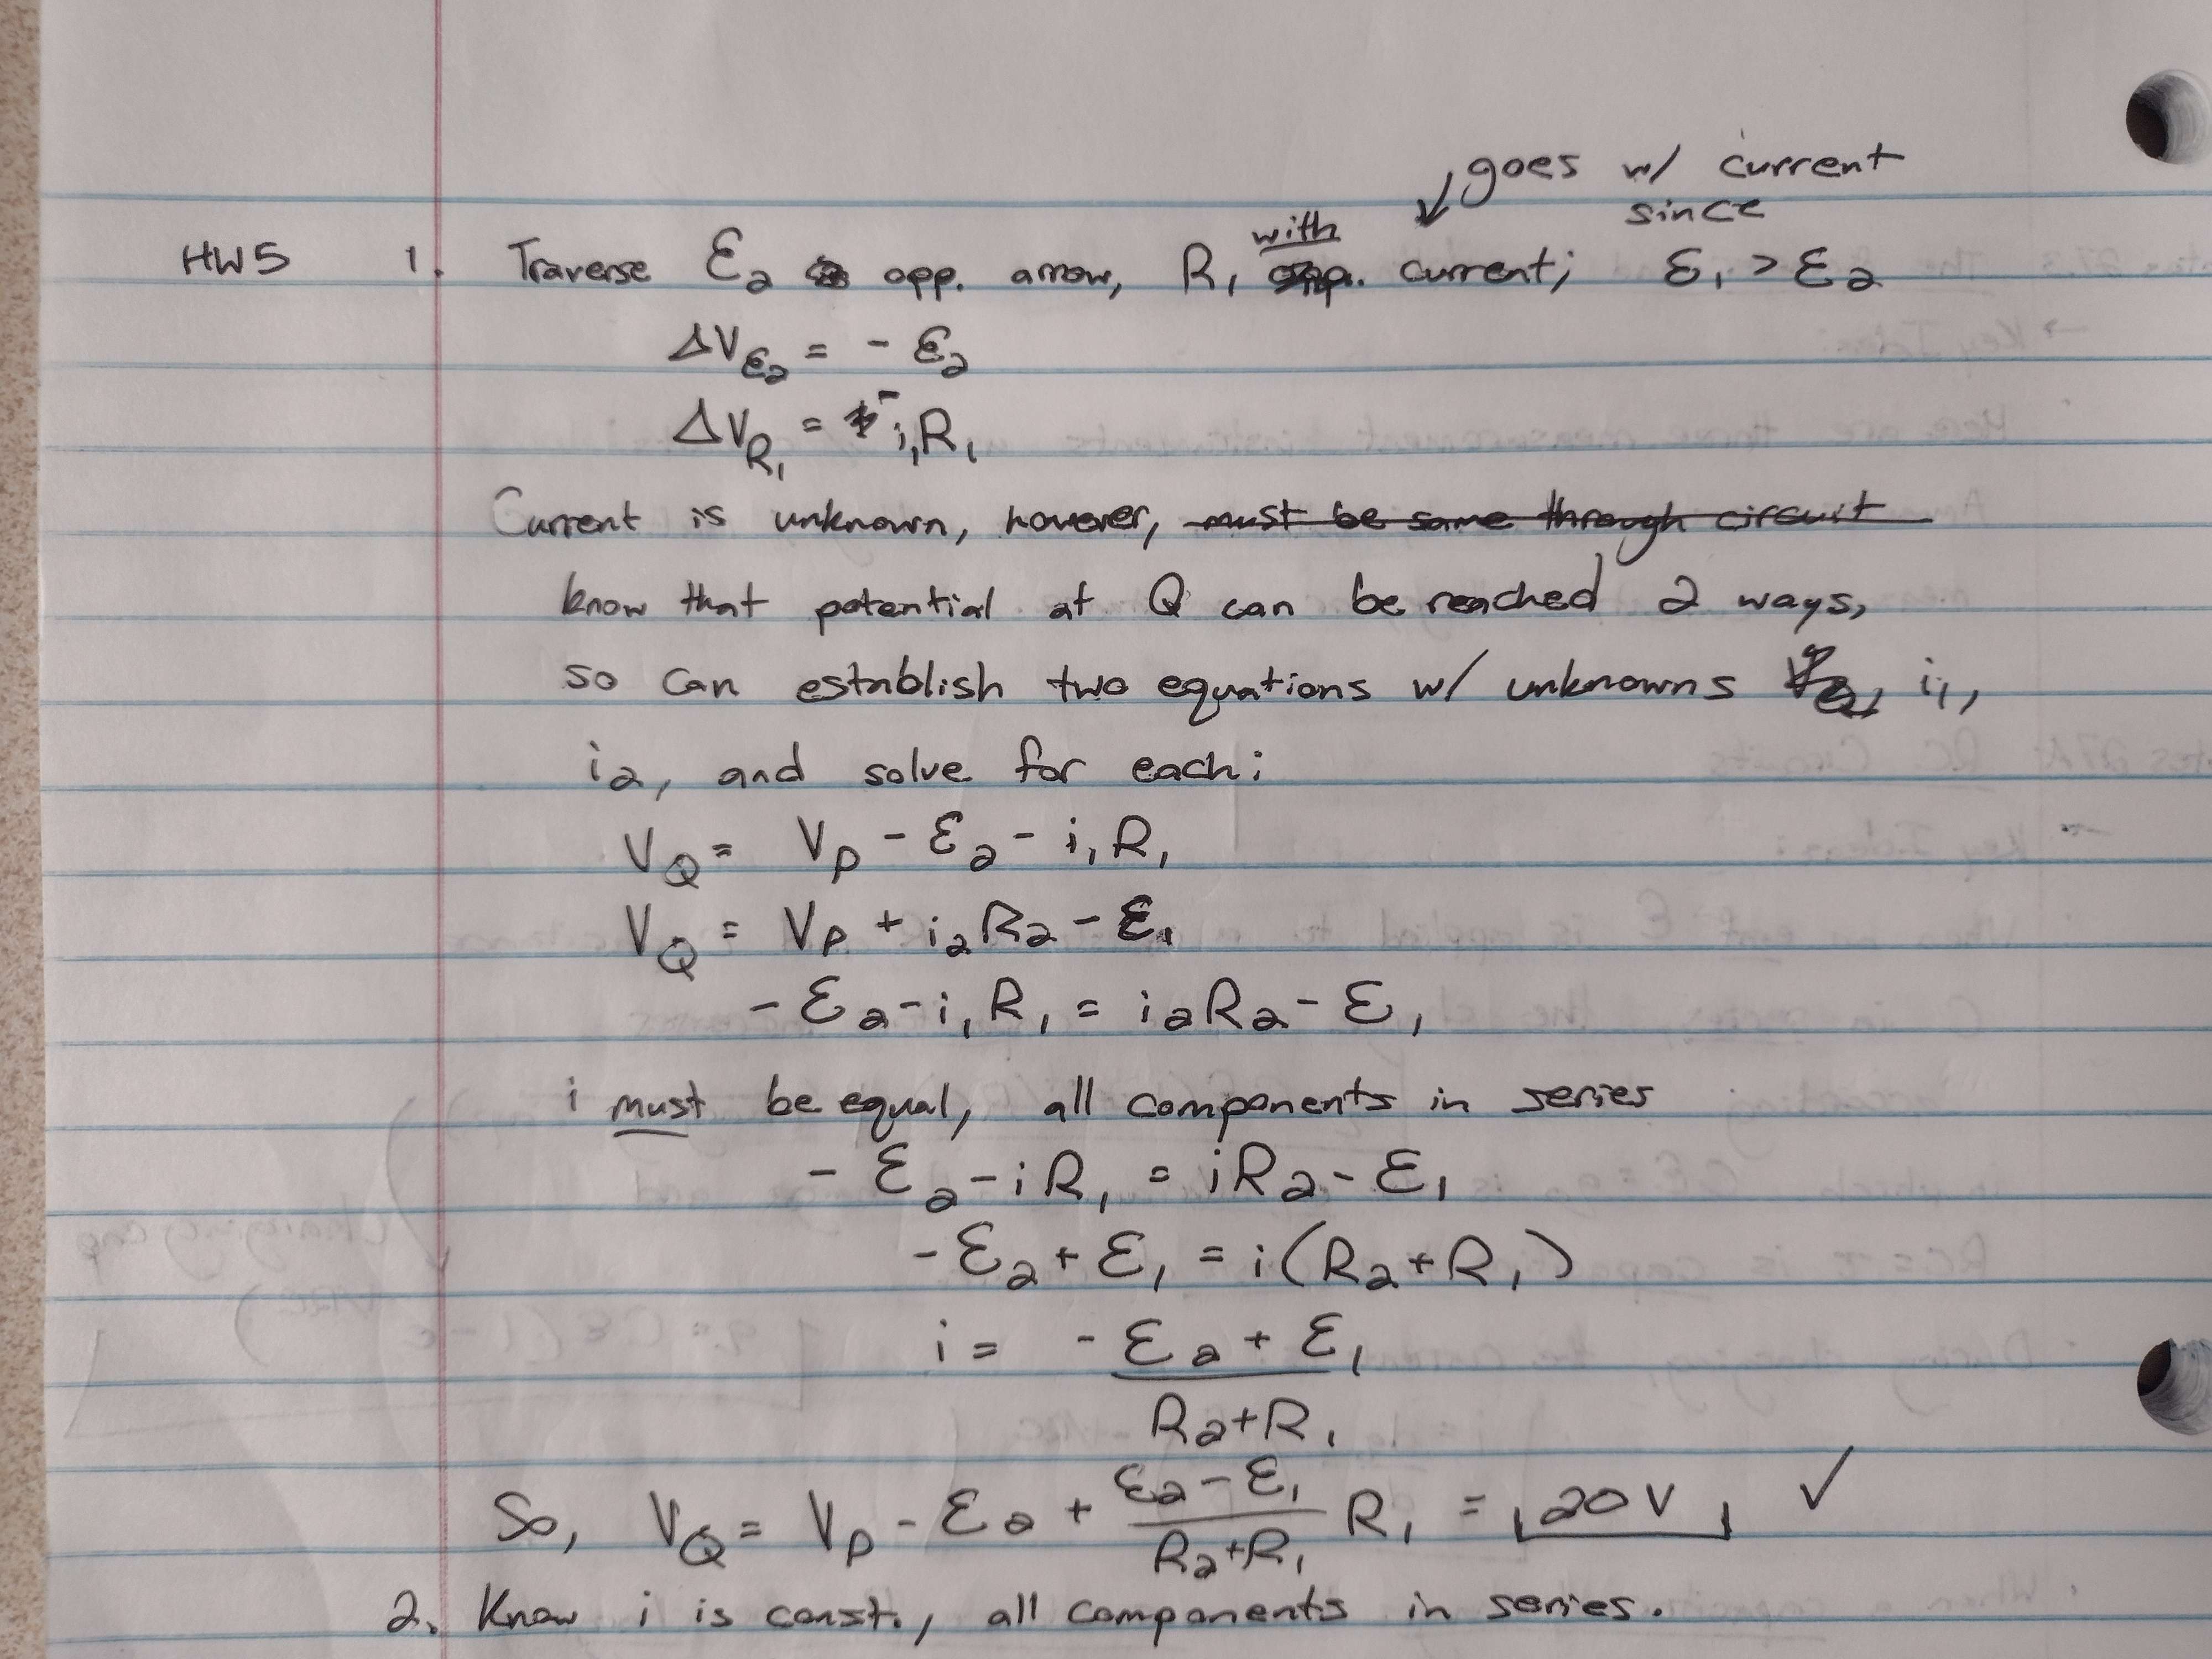 goes w/ current
since
with
HW5 1. Traverse ℰ₂ opp. arrow, R₁ current; ℰ₁ > ℰ₂
ΔV_ℰ₂ = - ℰ₂
ΔV_R₁ = - i₁R₁
Current is unknown, however, must be same through circuit
know that potential at Q can be reached 2 ways,
so can establish two equations w/ unknowns i₁,
i₂, and solve for each:
V_Q = V_P - ℰ₂ - i₁R₁
V_Q = V_P + i₂R₂ - ℰ₁
- ℰ₂ - i₁R₁ = i₂R₂ - ℰ₁
i must be equal, all components in series
- ℰ₂ - iR₁ = iR₂ - ℰ₁
- ℰ₂ + ℰ₁ = i(R₂ + R₁)
i = - ℰ₂ + ℰ₁
R₂ + R₁
ℰ₂ - ℰ₁
So, V_Q = V_P - ℰ₂ + R₁ = 20 V ✓
R₂ + R₁
2. Know i is const., all components in series.